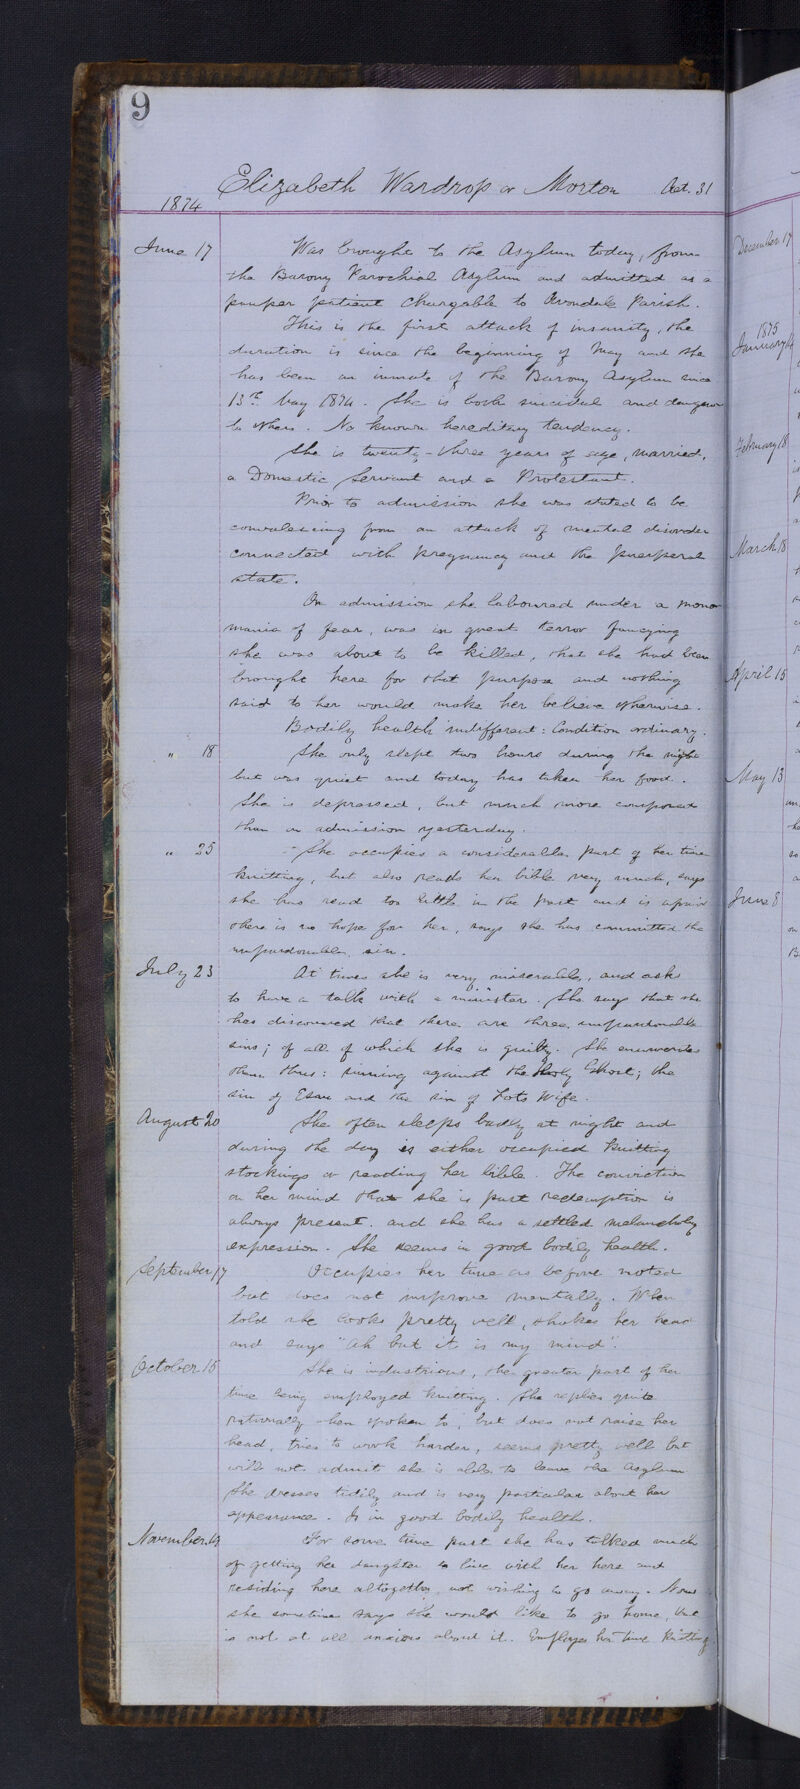 9
Elizabeth Wardrop or Morton Aet. 31
1874
June 17 Was brought to the Asylum today, from
the Barony Parochial Asylum and admitted as a
pauper patient chargable to Avondale Parish.
This is the first attack of insanity, the
duration is since the beginning of May and she
has been an inmate of the Barony Asylum since
13th May 1874. She is both suicidal and dangerous
to others. No known hereditary tendency.
She is twenty-three years of age, married,
a Domestic Servant and a Protestant.
Prior to admission she was stated to be
convalescing from an attack of mental disorder
connected with pregnancy and the puerperal
state.
On admission she laboured under a mono
mania of fear, was in great terror fancying
she was about to be killed, that she had been
brought here for that purpose and nothing
said to her would make her believe otherwise.
Bodily health indifferent: Condition ordinary.
" 18 She only slept two hours during the night
but was quiet and today has taken her food.
She is depressed, but much more composed
than on admission yesterday.
" 25 She occupies a considerable part of her time
knitting, but also reads her bible very much, says
she has read too little in the past and is afraid
there is no hope for her, says she has committed the
unpardonable sin.
July 23 At times she is very miserable, and asks
to have a talk with a minister. She says that she
has discovered that there are three unpardonable
sins; of all of which she is guilty. She enumerates
them thus: sinning against the Holy Ghost; the
sin of Esau and the sin of Lots Wife.
August 20 She often sleeps badly at night and
during the day is either occupied knitting
stockings or reading her bible. The conviction
on her mind that she is past redemption is
always present. and she has a settled melancholy
expression. She seems in good bodily health.
September 17 Occupies her time as before noted
but does not improve mentally. When
told she looks pretty well, shakes her head
and says "ah but it is my mind".
October 15 She is industrious, the greater part of her
time being employed knitting. She replies quite
rationally when spoken to, but does not raise her
head, tries to work harder, seems pretty well but
will not admit she is able to leave the Asylum
She dresses tidily and is very particular about her
appearance. Is in good bodily health.
November 19 For some time past she has talked much
of getting her daughter to live with her here and
residing here altogether, not wishing to go away. Now
she sometimes says she would like to go home, but
is not at all anxious about it. Employs her time knitting
December 17
1875
January 14
February 18
March 18
April 15
May 13
June 8